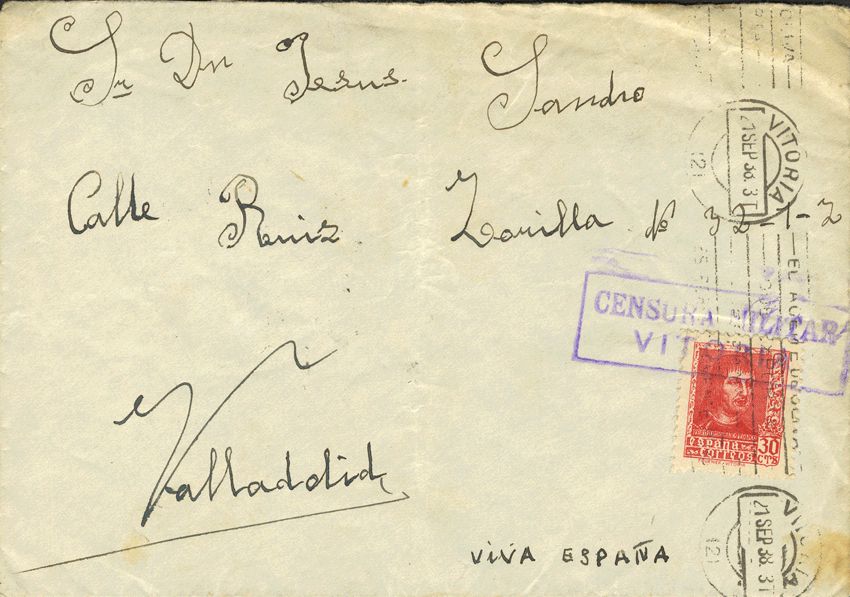 Sr Dn Jesus Sandro
Calle Ruiz Zorilla Nº 32-1-2
Valladolid
VIVA ESPAÑA
CENSURA MILITAR
VITORIA
ESPAÑA
CORREOS
30
CTS
VITORIA
21 SEP 38. 3T
(2)
VITORIA
21 SEP 38. 3T
(2)